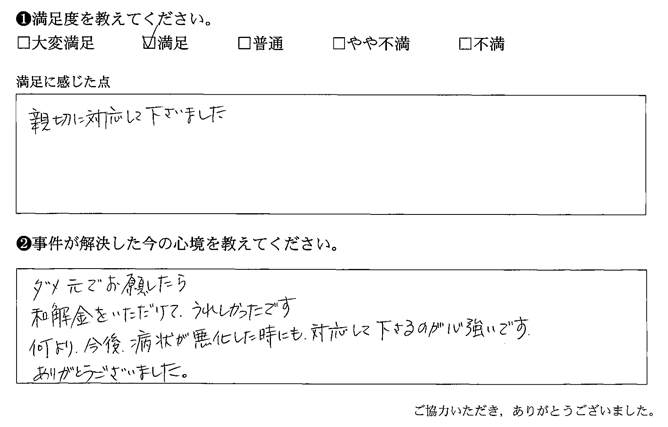 ❶満足度を教えてください。
□大変満足 ☑満足 □普通 □やや不満 □不満
満足に感じた点
親切に対応して下さいました
❷事件が解決した今の心境を教えてください。
ダメ元でお願したら
和解金をいただけて、うれしかったです
何より、今後、病状が悪化した時にも、対応して下さるのが心強いです.
ありがとうございました。
ご協力いただき，ありがとうございました。